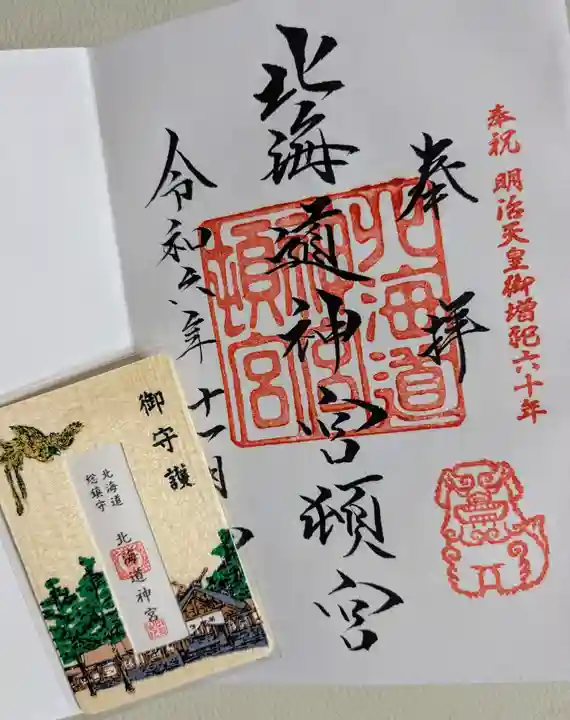 奉祝 明治天皇御増祀六十年
奉拝
北海道神宮頓宮
北海道神宮頓宮
令和六年十一月
御守護
北海道
総鎮守
北海道神宮